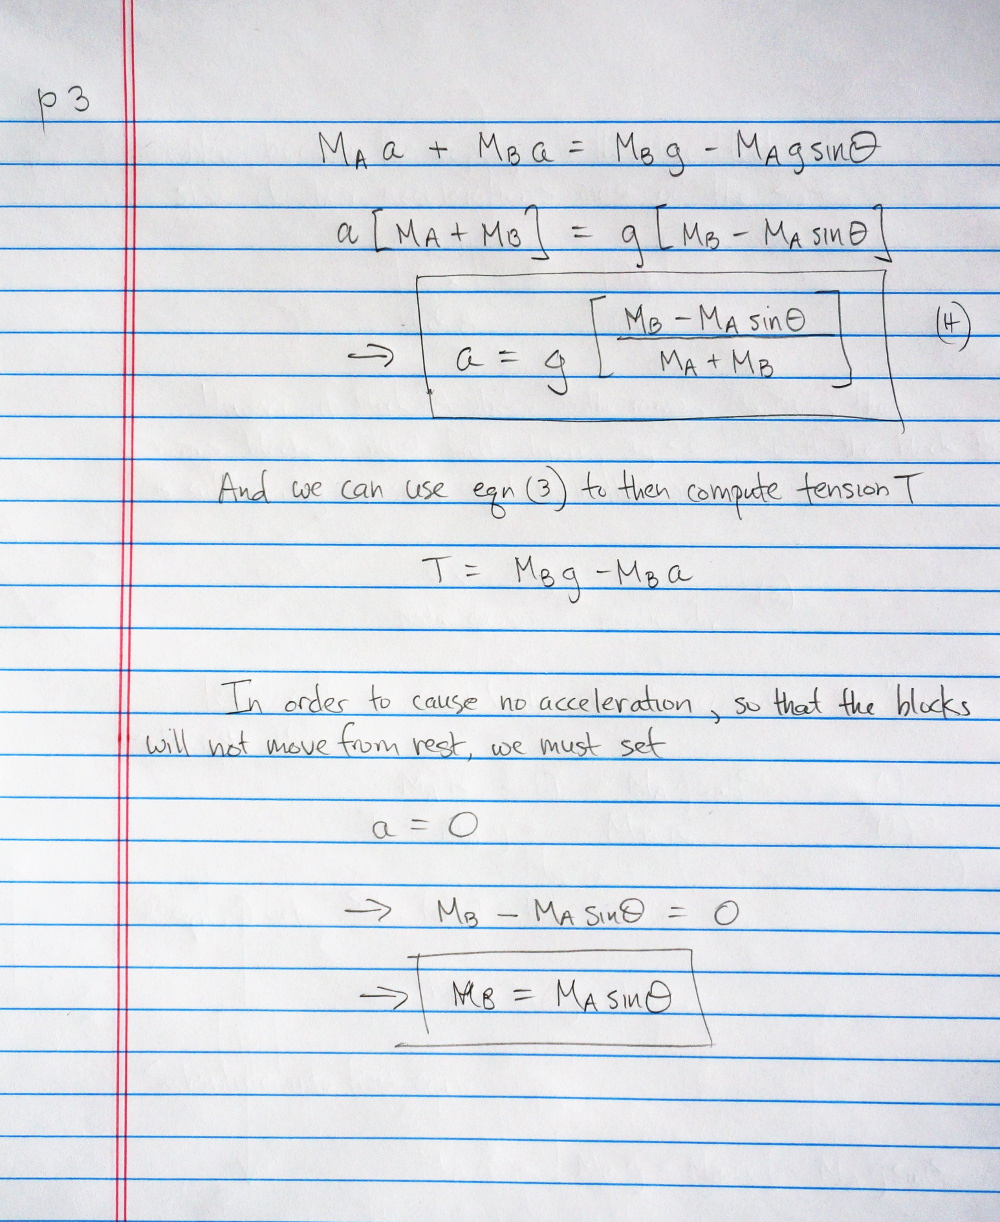 p 3
M_A a + M_B a = M_B g - M_A g sinθ
a [M_A + M_B] = g [M_B - M_A sinθ]
→ a = g [(M_B - M_A sinθ) / (M_A + M_B)] (4)
And we can use eqn (3) to then compute tension T
T = M_B g - M_B a
In order to cause no acceleration, so that the blocks
will not move from rest, we must set
a = 0
→ M_B - M_A sinθ = 0
→ M_B = M_A sinθ